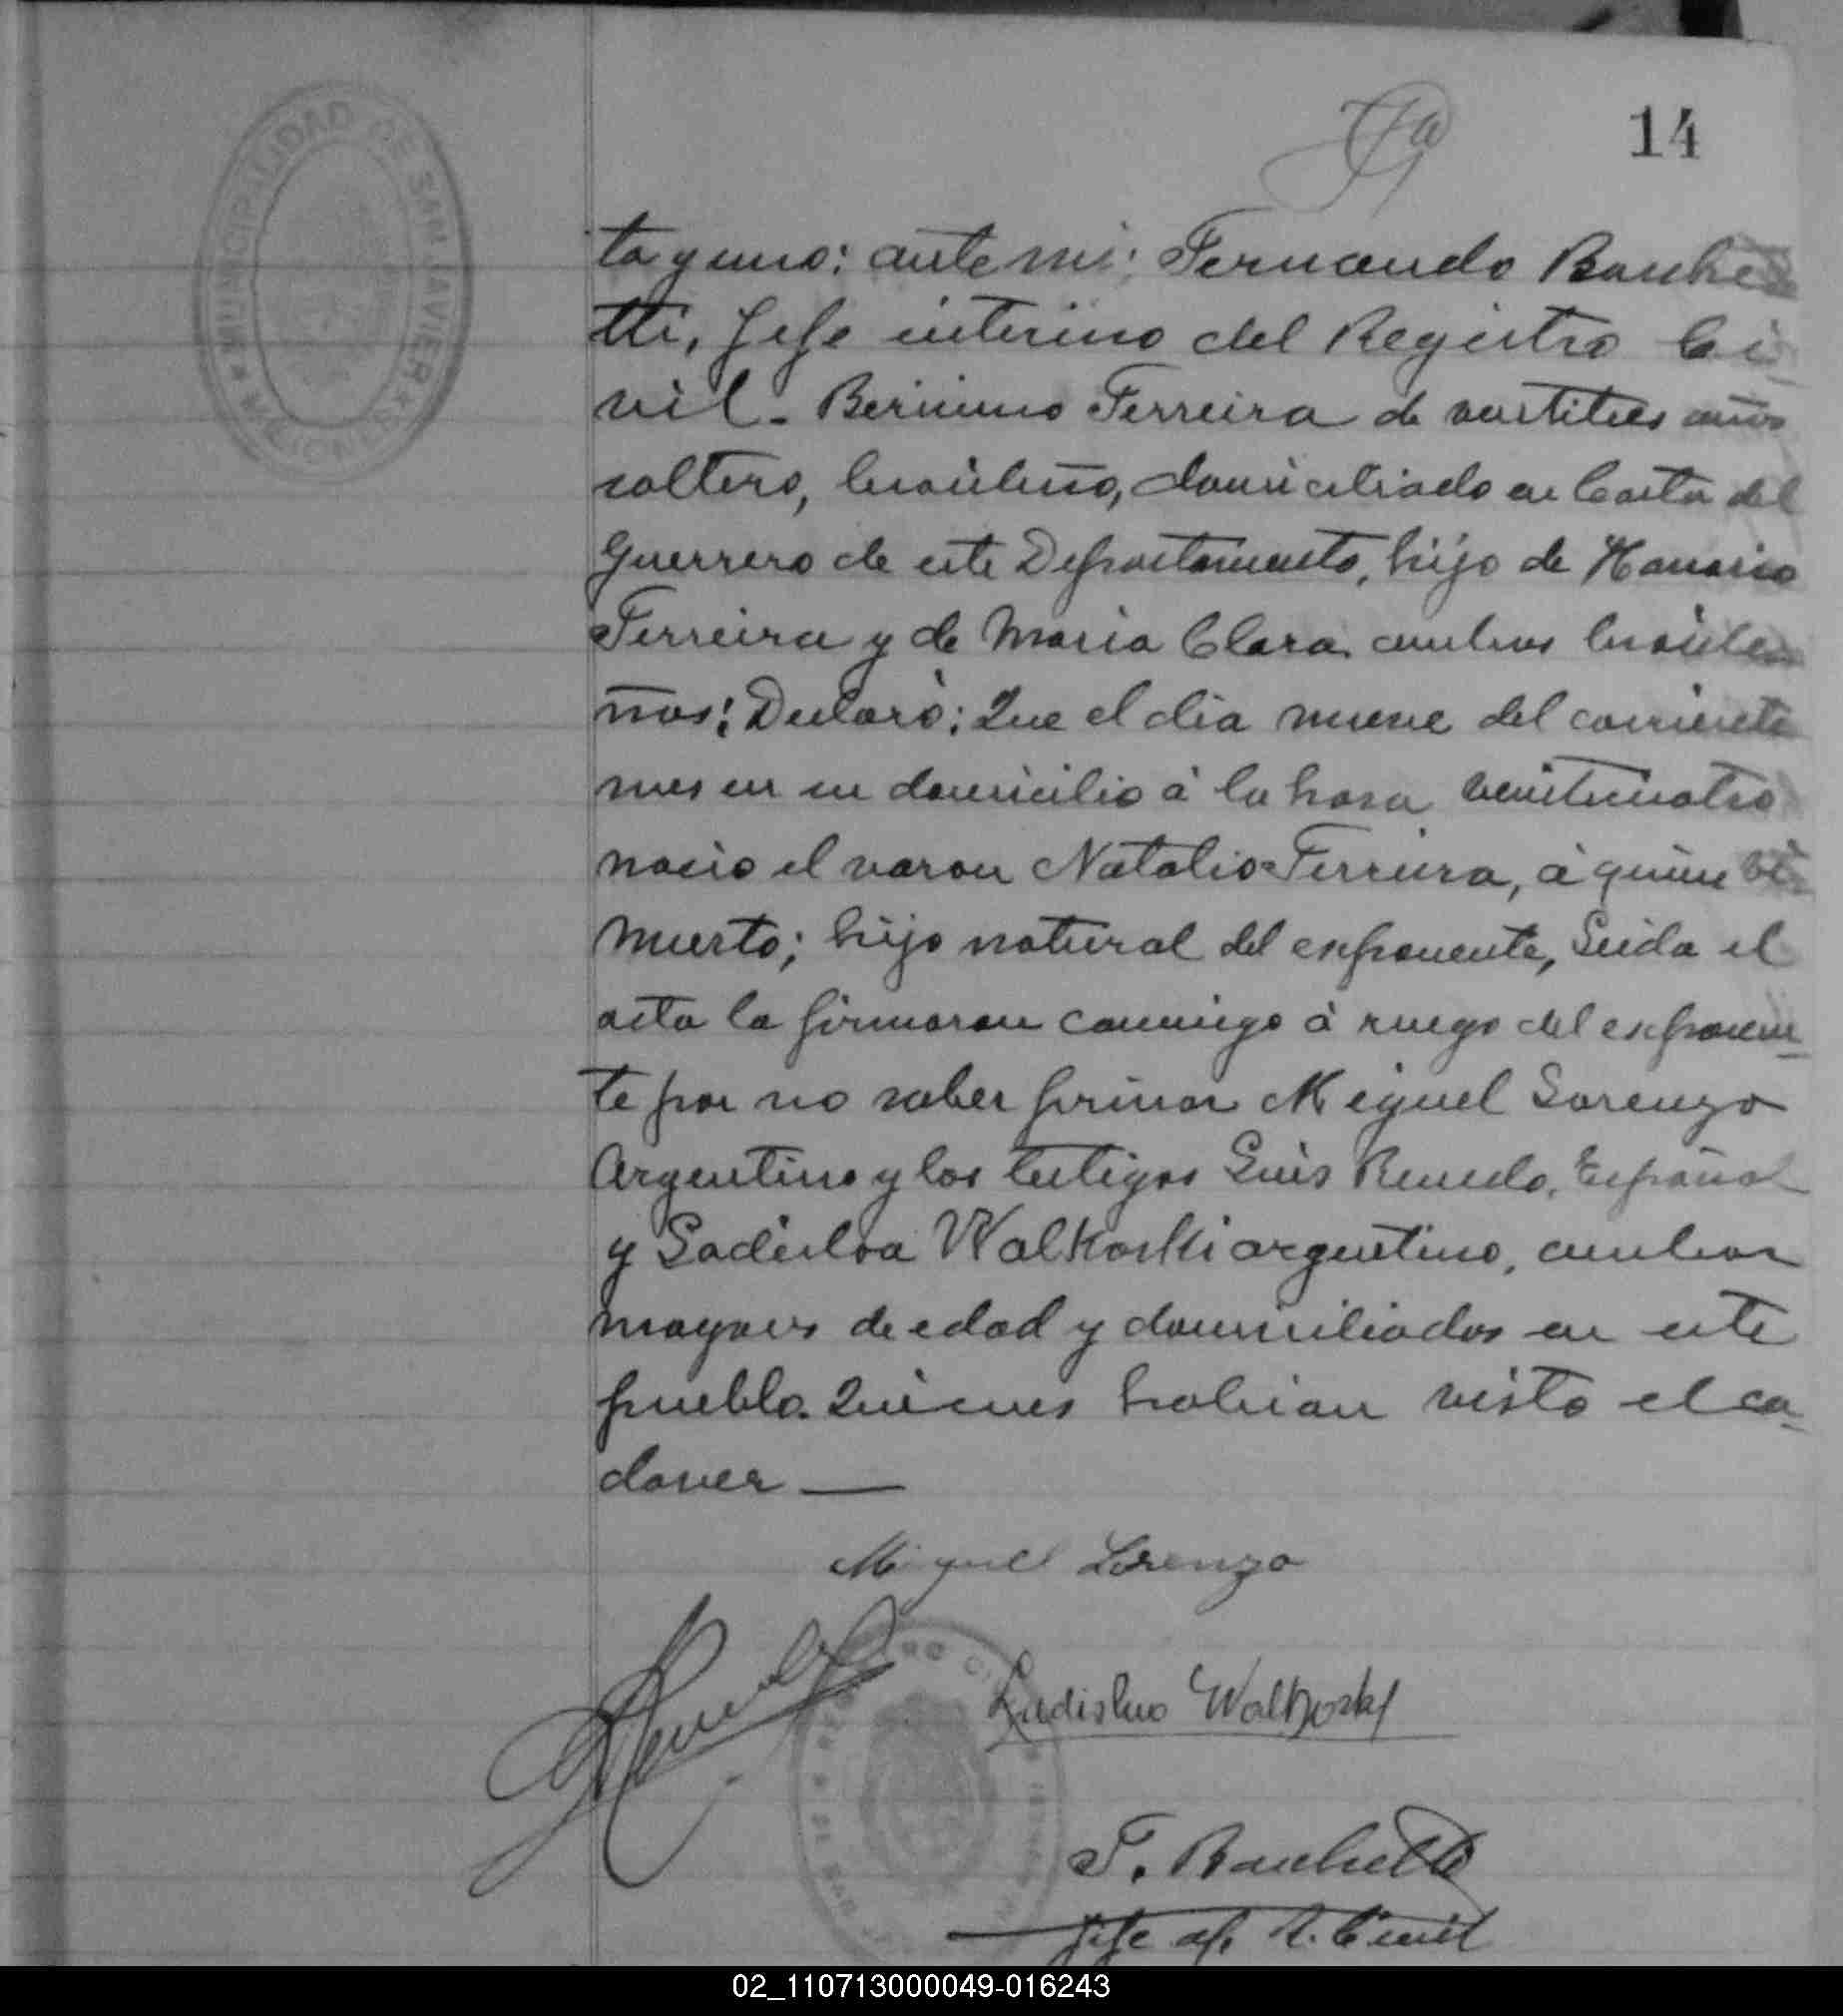 14
MUNICIPALIDAD DE SAN JAVIER
MISIONES
ta y uno: ante mi: Fernando Banche
tti, Jefe interino del Registro Ci
vil. Ferreira de años
soltero, brasileño, domiciliado en Costa del
Guerrero de este Departamento, hijo de
Ferreira y de Maria Clara ambos brasile
ños; Declaró: Que el dia nueve del corriente
mes en su domicilio à la hora veinticuatro
nacio el varon Natalio Ferreira, à quien vi
muerto; hijo natural del exponente, Leida el
acta la firmaron conmigo à ruego del exponen
te por no saber firmar Miguel Lorenzo
Argentino y los testigos Luis Renedo, Español
y Ladislao Walkoski argentino, ambos
mayores de edad y domiciliados en este
pueblo. Quienes habian visto el ca
daver —
Miguel Lorenzo
Ladislao Walkoski
F. Banchetti
Jefe R. Civil
02_110713000049-016243